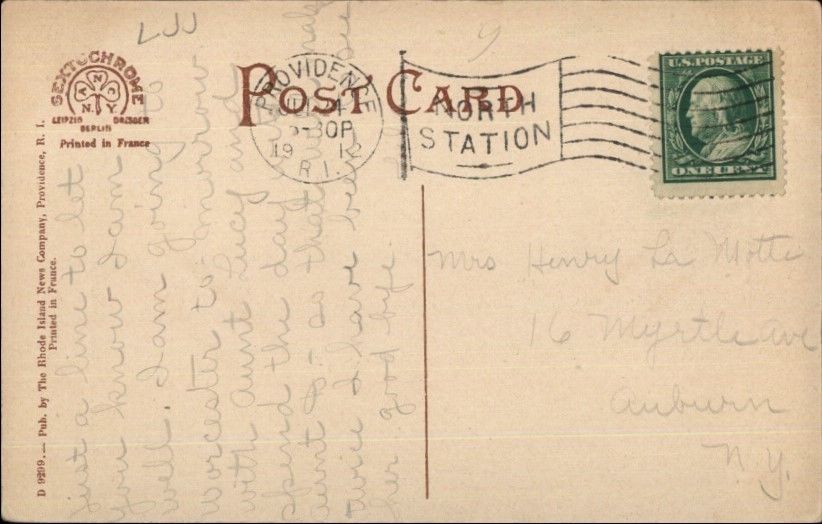 LJJ
SEXTOCHROME
A N D
N. Y
LEIPZIG DRESDEN
BERLIN
Printed in France
POST CARD
PROVIDENCE
-30P
19 12
R.I.
NORTH
STATION
U.S. POSTAGE
ONE CENT
D 9299.— Pub. by The Rhode Island News Company, Providence, R. I.
Printed in France.
just a line to let
you know I am
well. I am going to
Worcester to-morrow
with Aunt Lucy and
spend the day with
aunt - so that makes
twice I have been to see
her good bye.
Mrs Henry La Motte
16 Myrtle Ave
Auburn
N.Y.